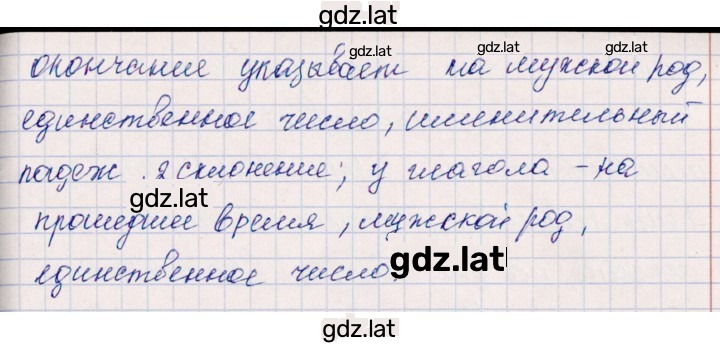 gdz.lat
окончание указывает на мужской род,
gdz.lat gdz.lat gdz.lat
единственное число, именительный
падеж. 2 склонение; у глагола - на
gdz.lat
прошедшее время, мужской род,
gdz.lat
единственное число.
gdz.lat
gdz.lat